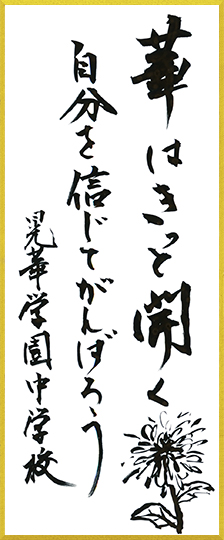 華はきっと開く
自分を信じてがんばろう
晃華学園中学校